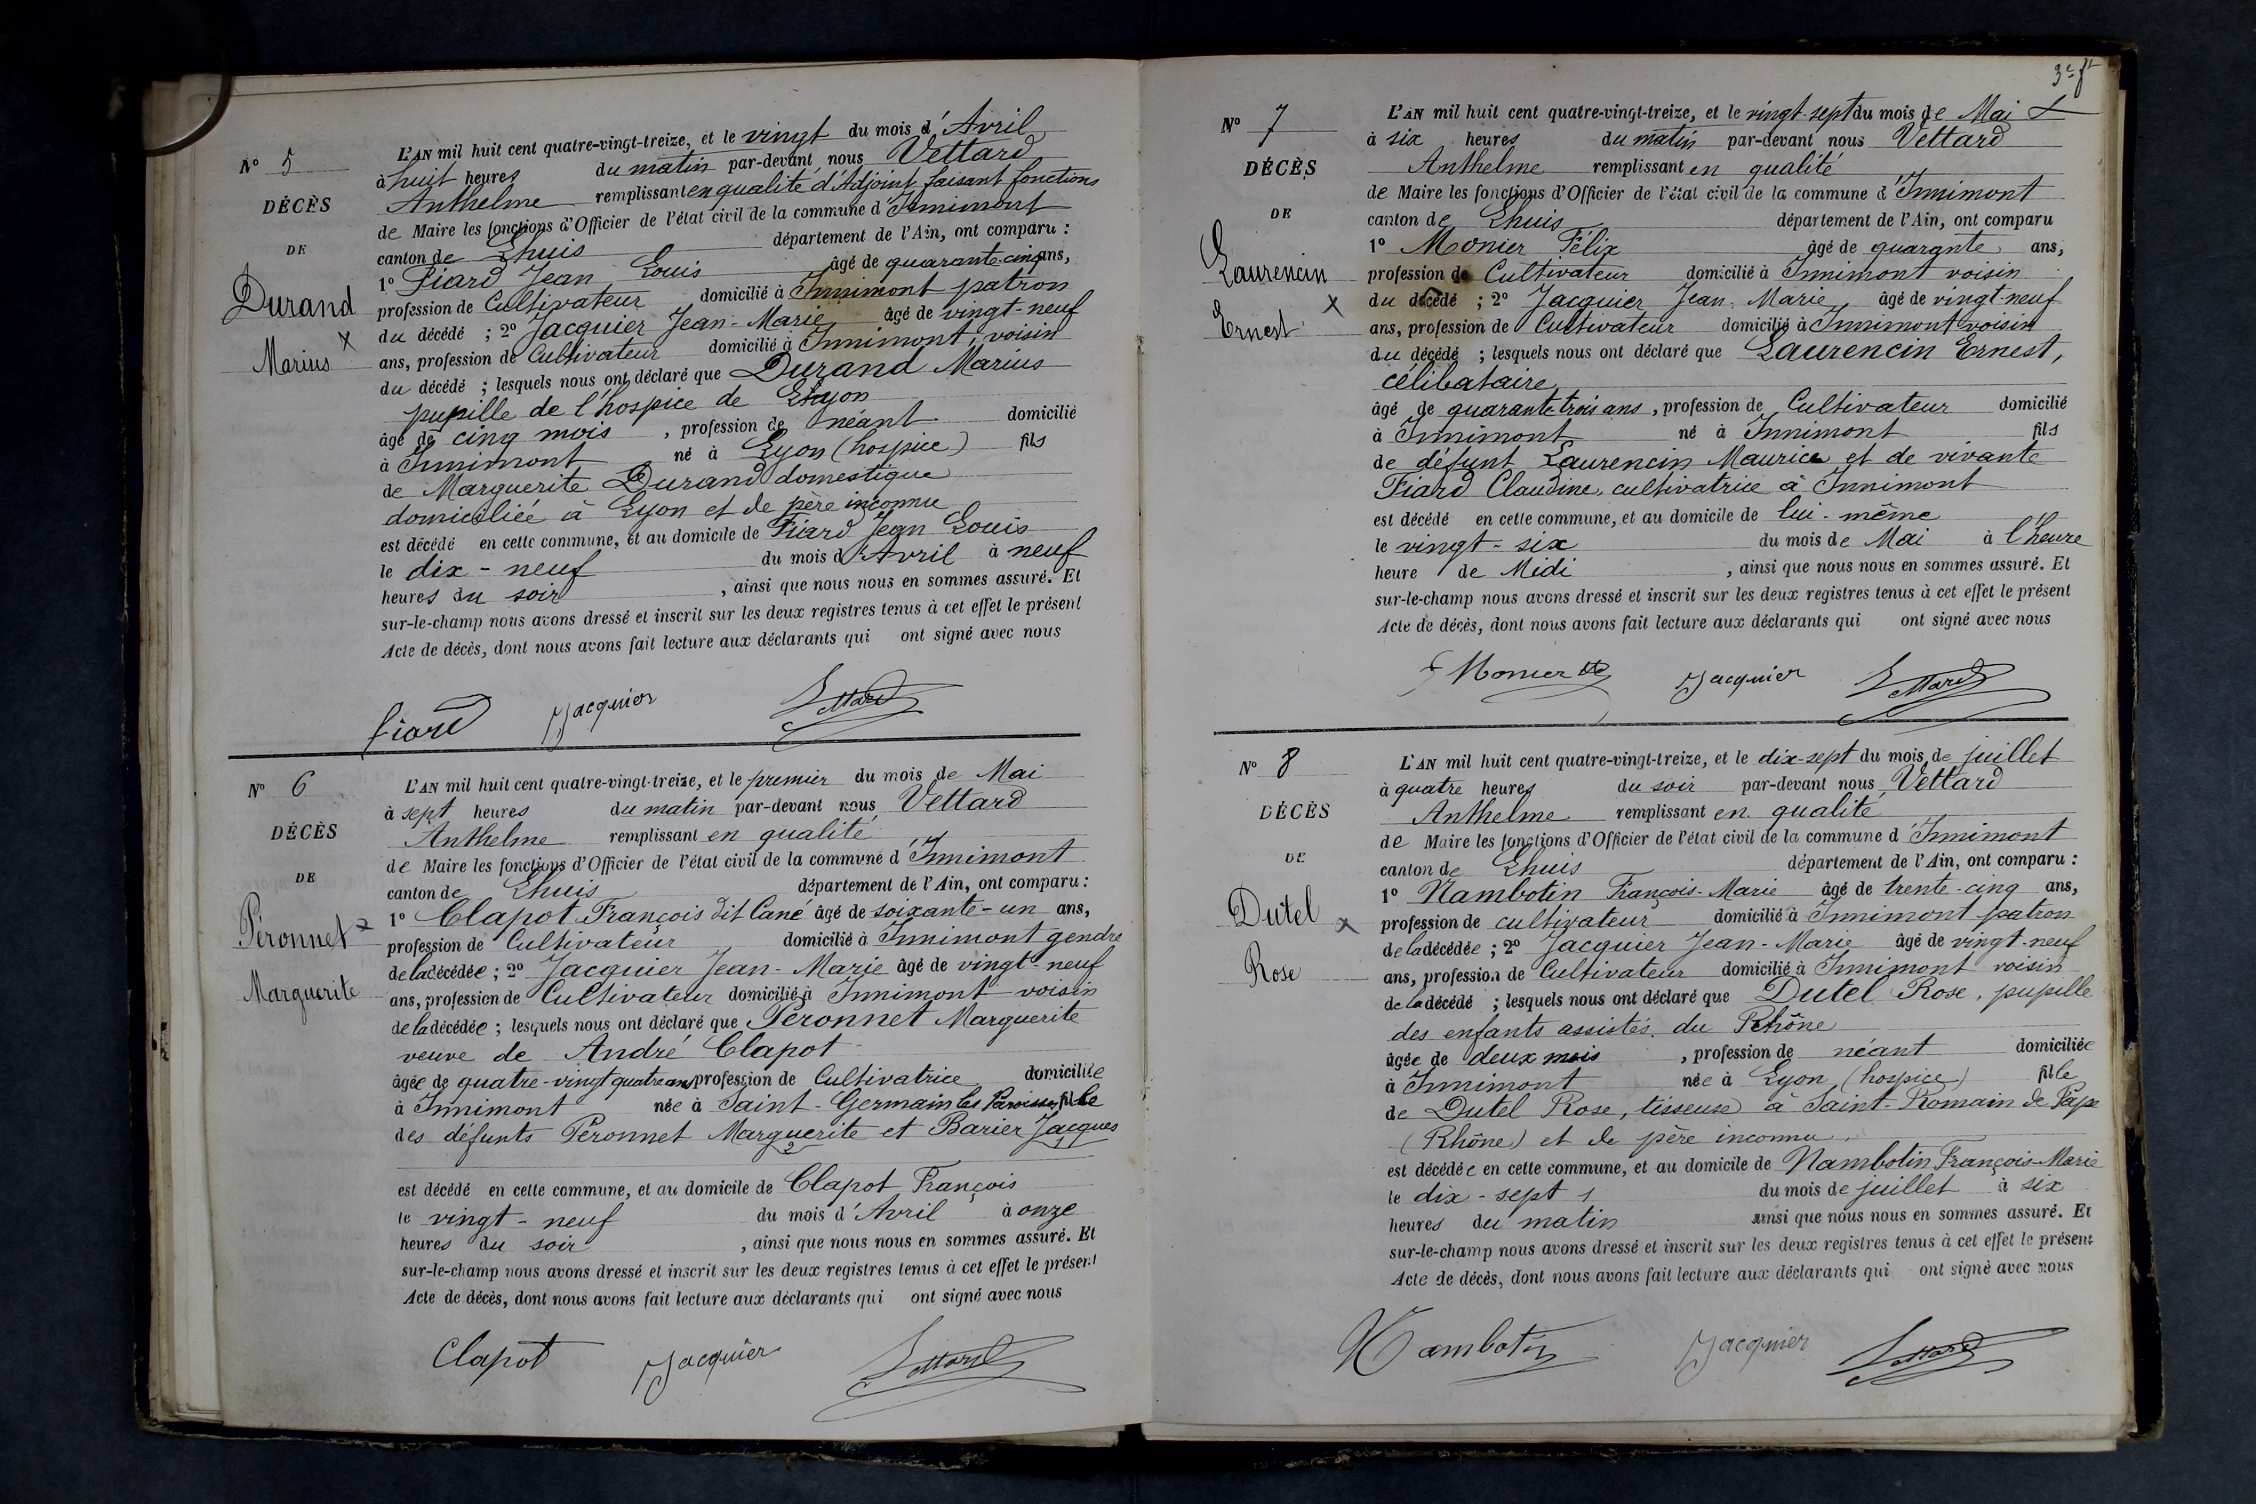 N° 5
DÉCÈS
DE
Durand
Marius
L'AN mil huit cent quatre-vingt-treize, et le vingt du mois d'Avril
à huit heures du matin par-devant nous Vettard
Anthelme remplissant en qualité d'Adjoint faisant fonctions
de Maire les fonctions d'Officier de l'état civil de la commune d'Innimont
canton de Lhuis département de l'Ain, ont comparu :
1° Fiard Jean Louis âgé de quarante-cinq ans,
profession de Cultivateur domicilié à Innimont patron
du décédé ; 2° Jacquier Jean-Marie âgé de vingt-neuf
ans, profession de Cultivateur domicilié à Innimont, voisin
du décédé ; lesquels nous ont déclaré que Durand Marius
pupille de l'hospice de Lyon
âgé de cinq mois , profession de néant domicilié
à Innimont né à Lyon (hospice) fils
de Marguerite Durand domestique
domiciliée à Lyon et de père inconnu
est décédé en cette commune, et au domicile de Fiard Jean Louis
le dix-neuf du mois d'Avril à neuf
heures du soir , ainsi que nous nous en sommes assuré. Et
sur-le-champ nous avons dressé et inscrit sur les deux registres tenus à cet effet le présent
Acte de décès, dont nous avons fait lecture aux déclarants qui ont signé avec nous
fiard Jacquier Vettard
N° 6
DÉCÈS
DE
Péronnet
Marguerite
L'AN mil huit cent quatre-vingt-treize, et le premier du mois de Mai
à sept heures du matin par-devant nous Vettard
Anthelme remplissant en qualité
de Maire les fonctions d'Officier de l'état civil de la commune d'Innimont
canton de Lhuis département de l'Ain, ont comparu :
1° Clapot François dit Cané âgé de soixante-un ans,
profession de Cultivateur domicilié à Innimont gendre
de la décédée ; 2° Jacquier Jean-Marie âgé de vingt-neuf
ans, profession de Cultivateur domicilié à Innimont voisin
de la décédée ; lesquels nous ont déclaré que Péronnet Marguerite
veuve de André Clapot
âgée de quatre-vingt quatre ans profession de Cultivatrice domiciliée
à Innimont née à Saint-Germain les Paroisses fille
des défunts Peronnet Marguerite et Barier Jacques
2 1
est décédé en cette commune, et au domicile de Clapot François
le vingt-neuf du mois d'Avril à onze
heures du soir , ainsi que nous nous en sommes assuré. Et
sur-le-champ nous avons dressé et inscrit sur les deux registres tenus à cet effet le présent
Acte de décès, dont nous avons fait lecture aux déclarants qui ont signé avec nous
Clapot Jacquier Vettard
3e ft
N° 7
DÉCÈS
DE
Laurencin
Ernest
L'AN mil huit cent quatre-vingt-treize, et le vingt-sept du mois de Mai
à six heures du matin par-devant nous Vettard
Anthelme remplissant en qualité
de Maire les fonctions d'Officier de l'état civil de la commune d'Innimont
canton de Lhuis département de l'Ain, ont comparu
1° Monier Félix âgé de quarante ans,
profession de Cultivateur domicilié à Innimont voisin
du décédé ; 2° Jacquier Jean-Marie âgé de vingt-neuf
ans, profession de Cultivateur domicilié à Innimont voisin
du décédé ; lesquels nous ont déclaré que Laurencin Ernest,
célibataire
âgé de quarante trois ans, profession de Cultivateur domicilié
à Innimont né à Innimont fils
de défunt Laurencin Maurice et de vivante
Fiard Claudine, cultivatrice à Innimont
est décédé en cette commune, et au domicile de lui-même
le vingt-six du mois de Mai à l'heure
heure de Midi , ainsi que nous nous en sommes assuré. Et
sur-le-champ nous avons dressé et inscrit sur les deux registres tenus à cet effet le présent
Acte de décès, dont nous avons fait lecture aux déclarants qui ont signé avec nous
Monier Jacquier Vettard
N° 8
DÉCÈS
DE
Dutel
Rose
L'AN mil huit cent quatre-vingt-treize, et le dix-sept du mois de juillet
à quatre heures du soir par-devant nous Vettard
Anthelme remplissant en qualité
de Maire les fonctions d'Officier de l'état civil de la commune d'Innimont
canton de Lhuis département de l'Ain, ont comparu :
1° Nambotin François-Marie âgé de trente-cinq ans,
profession de cultivateur domicilié à Innimont patron
de la décédée ; 2° Jacquier Jean-Marie âgé de vingt-neuf
ans, profession de Cultivateur domicilié à Innimont voisin
de la décédé ; lesquels nous ont déclaré que Dutel Rose, pupille
des enfants assistés du Rhône
âgée de deux mois , profession de néant domiciliée
à Innimont née à Lyon (hospice) fille
de Dutel Rose, tisseuse à Saint-Romain de Pape
(Rhône) et de père inconnu.
est décédée en cette commune, et au domicile de Nambotin François-Marie
le dix-sept du mois de juillet à six
heures du matin ainsi que nous nous en sommes assuré. Et
sur-le-champ nous avons dressé et inscrit sur les deux registres tenus à cet effet le présent
Acte de décès, dont nous avons fait lecture aux déclarants qui ont signé avec nous
Nambotin Jacquier Vettard